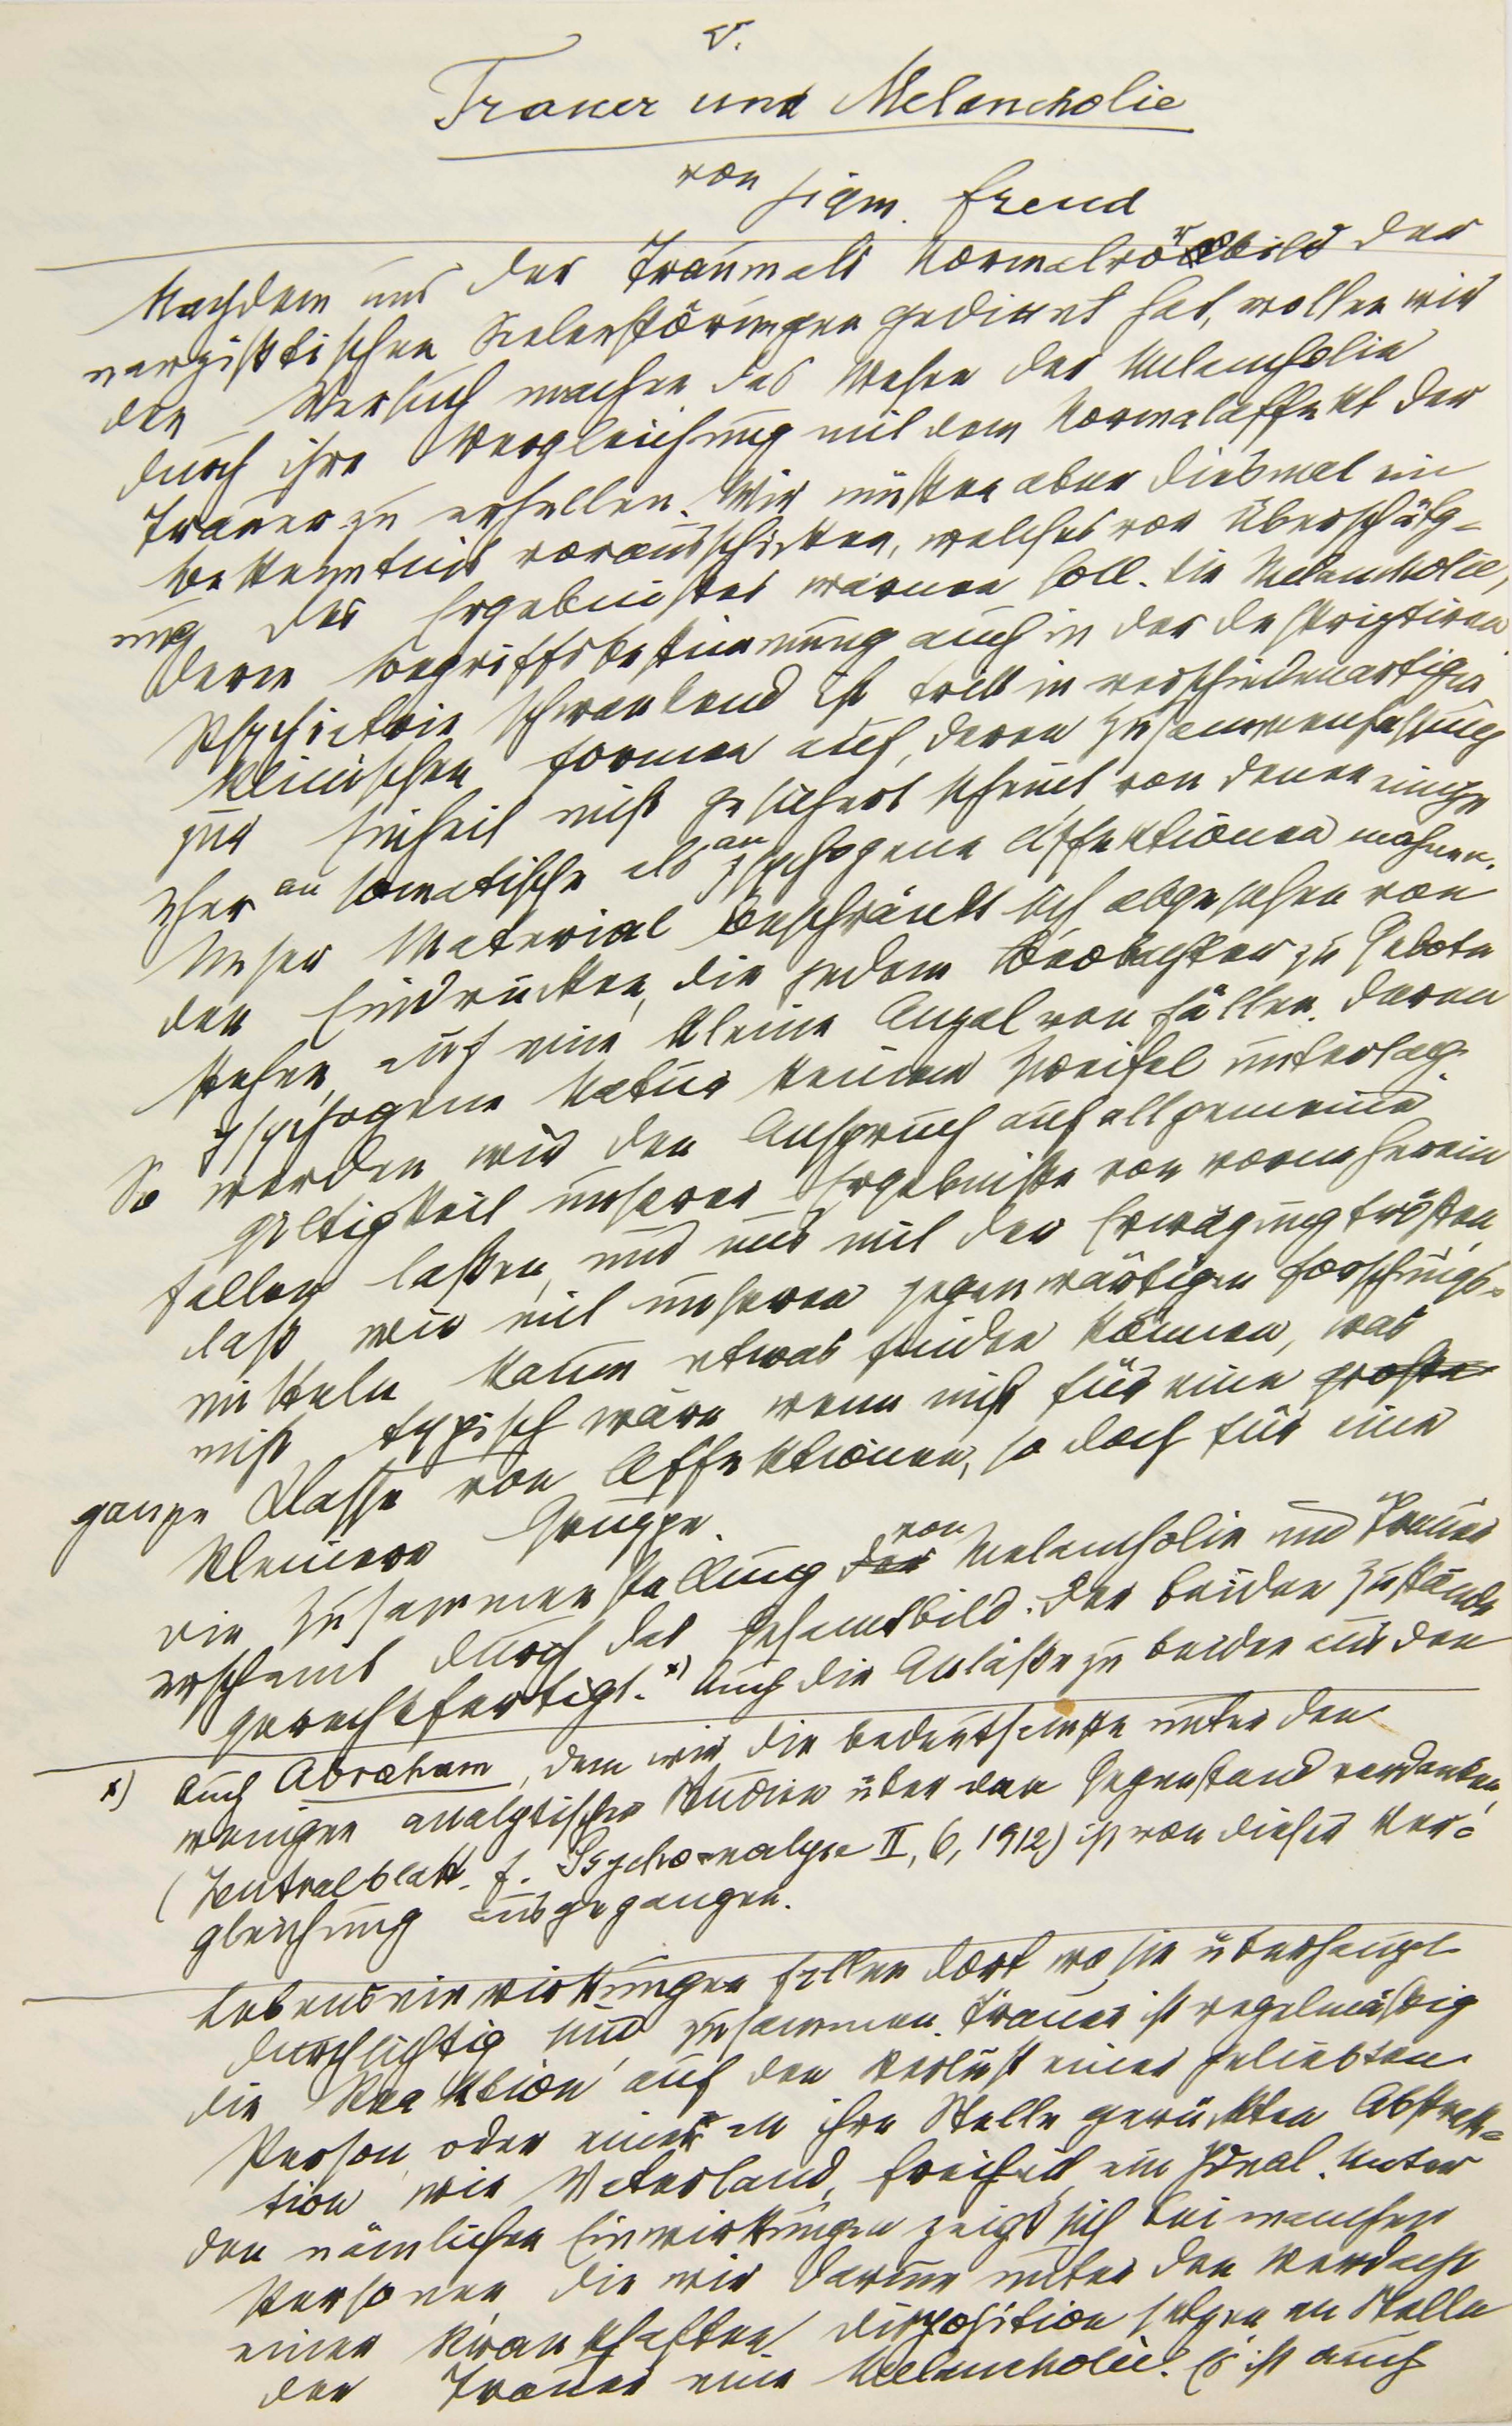 V.
Trauer und Melancholie
von Sigm. Freud
Nachdem uns der Traum als Normalvorbild der
narzißtischen Seelenstörungen gedient hat, wollen wir
den Versuch machen das Wesen der Melancholie
durch ihre Vergleichung mit dem Normalaffekt der
Trauer zu erhellen. Wir müssen aber diesmal ein
Bekenntnis vorausschicken, welches vor Überschätz=
ung des Ergebnisses warnen soll. Die Melancholie,
deren Begriffsbestimmung auch in der deskriptiven
Psychiatrie schwankend ist tritt in verschiedenartigen
klinischen Formen auf, deren Zusammenfassung
zur Einheit nicht gesichert scheint, von denen einige
eher an somatische als an psychogene Affektionen mahnen.
Unser Material beschränkt sich abgesehen von
den Eindrücken, die jedem Beobachter zu Gebote
stehen, auf eine kleine Anzal von Fällen, deren
psychogene Natur keinem Zweifel unterlag.
So werden wir den Anspruch auf allgemeine
Giltigkeit unserer Ergebnisse von vorneherein
fallen lassen, und uns mit der Erwägung trösten,
daß wir mit unseren gegenwärtigen Forschungs=
mitteln kaum etwas finden können, was
nicht typisch wäre wenn nicht für eine große
ganze Klasse von Affektionen, so doch für eine
kleinere Gruppe.
Die Zusammenstellung der von Melancholie und Trauer
erscheint durch das Gesamtbild der beiden Zustände
gerechtfertigt. x) Auch die Anläße zu beiden aus den
x) Auch Abraham, dem wir die bedeutsamste unter den
wenigen analytischen Studien über den Gegenstand verdanken,
(Zentralblatt f. Psychoanalyse II, 6, 1912) ist von dieser Ver=
gleichung ausgegangen.
Lebenseinwirkungen fallen dort wo sie überhaupt
durchsichtig sind zusammen. Trauer ist regelmäßig
die Reaktion auf den Verlust einer geliebten
Person oder einer an ihre Stelle gerückten Abstrak=
tion wie Vaterland, Freiheit, ein Ideal. Unter
den nämlichen Einwirkungen zeigt sich bei manchen
Personen die wir darum unter den Verdacht
einer krankhaften Disposition setzen an Stelle
der Trauer eine Melancholie. Es ist auch